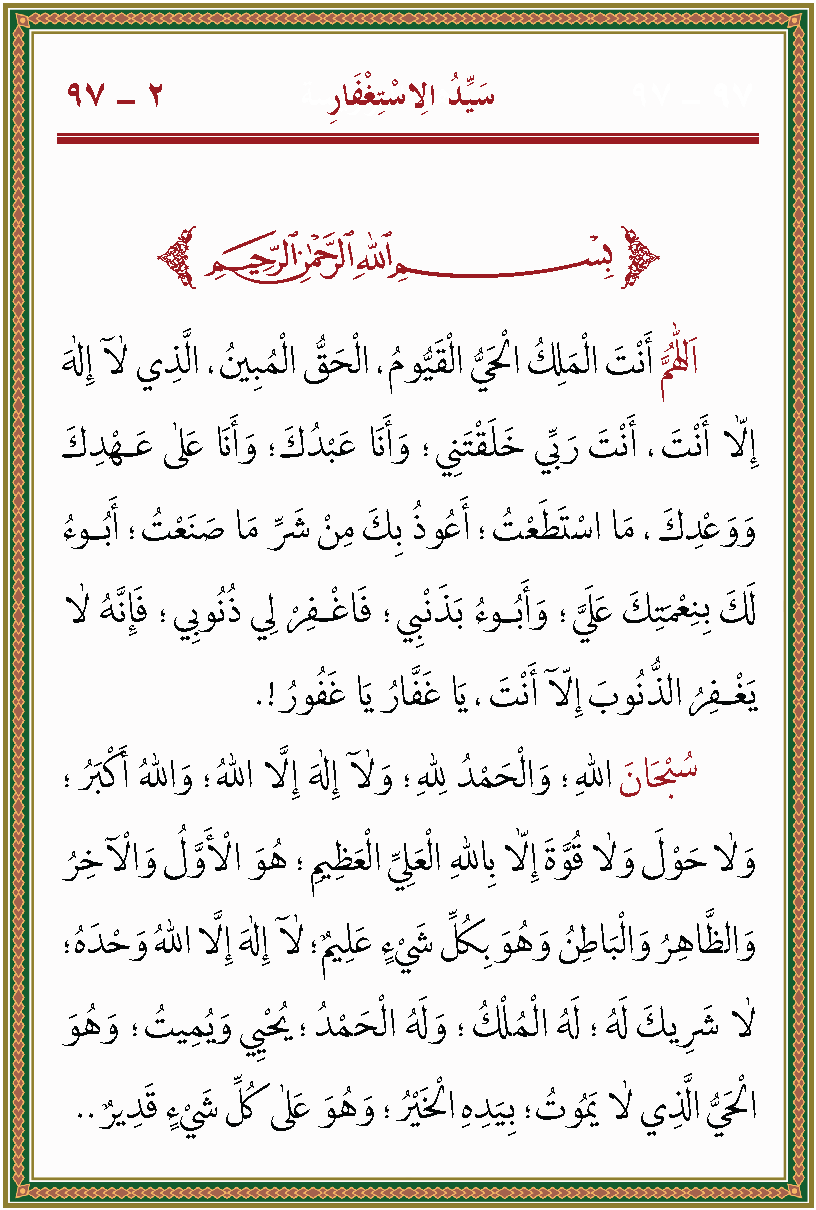 سَيِّدُ الِاسْتِغْفَارِ ٢ – ٩٧
بِسْمِ ٱللهِ ٱلرَّحْمٰنِ ٱلرَّحِيمِ
اَللّٰهُمَّ أَنْتَ الْمَلِكُ الْحَيُّ الْقَيُّومُ ، الْحَقُّ الْمُبِينُ ، الَّذِي لَآ إِلٰهَ
إِلَّا أَنْتَ ، أَنْتَ رَبِّي خَلَقْتَنِي ؛ وَأَنَا عَبْدُكَ ؛ وَأَنَا عَلٰى عَهْدِكَ
وَوَعْدِكَ ، مَا اسْتَطَعْتُ ؛ أَعُوذُ بِكَ مِنْ شَرِّ مَا صَنَعْتُ ؛ أَبُوءُ
لَكَ بِنِعْمَتِكَ عَلَيَّ ؛ وَأَبُوءُ بَذَنْبِي ؛ فَاغْفِرْ لِي ذُنُوبِي ؛ فَإِنَّهُ لَا
يَغْفِرُ الذُّنُوبَ إِلَّآ أَنْتَ ، يَا غَفَّارُ يَا غَفُورُ !.
سُبْحَانَ اللهِ ؛ وَالْحَمْدُ لِلهِ ؛ وَلَآ إِلٰهَ إِلَّا اللهُ ؛ وَاللهُ أَكْبَرُ ؛
وَلَا حَوْلَ وَلَا قُوَّةَ إِلَّا بِاللهِ الْعَلِيِّ الْعَظِيمِ ؛ هُوَ الْأَوَّلُ وَالْآخِرُ
وَالظَّاهِرُ وَالْبَاطِنُ وَهُوَ بِكُلِّ شَيْءٍ عَلِيمٌ ؛ لَآ إِلٰهَ إِلَّا اللهُ وَحْدَهُ ؛
لَا شَرِيكَ لَهُ ؛ لَهُ الْمُلْكُ ؛ وَلَهُ الْحَمْدُ ؛ يُحْيِي وَيُمِيتُ ؛ وَهُوَ
الْحَيُّ الَّذِي لَا يَمُوتُ ؛ بِيَدِهِ الْخَيْرُ ؛ وَهُوَ عَلٰى كُلِّ شَيْءٍ قَدِيرٌ ..